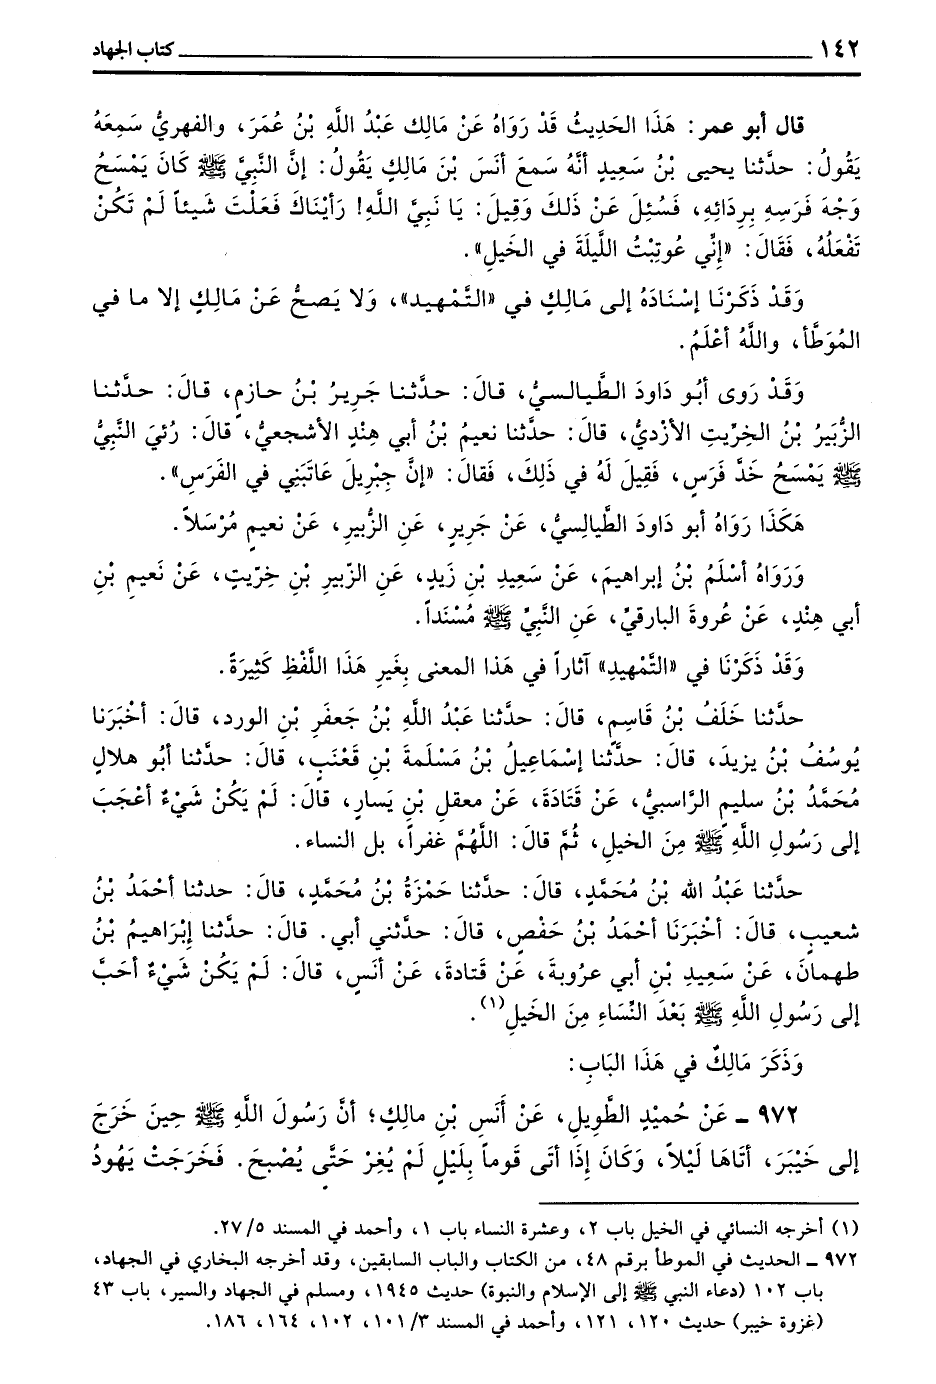 ١٤٢ كتاب الجهاد
قال أبو عمر: هَذَا الحَدِيثُ قَدْ رَوَاهُ عَنْ مَالِك عَبْدُ اللَّهِ بْنُ عُمَرَ، والفهريُّ سَمِعَهُ
يَقُولُ: حدَّثنا يحيى بْنُ سَعِيدٍ أنَّهُ سَمعَ أنَسَ بْنَ مَالِكٍ يَقُولُ: إنَّ النَّبِيَّ ﷺ كَانَ يَمْسَحُ
وَجْهَ فَرَسِهِ بِرِدَائِهِ، فَسُئِلَ عَنْ ذَلكَ وَقِيلَ: يَا نَبِيَّ اللَّهِ! رَأيْنَاكَ فَعَلْتَ شَيئاً لَمْ تَكُنْ
تَفْعَلُهُ، فَقَالَ: «إنِّي عُوتِبْتُ اللَّيلَةَ في الخَيلِ».
وَقَدْ ذَكَرْنَا إسْنَادَهُ إلى مَالِكٍ في «التَّمْهيد»، وَلا يَصحُّ عَنْ مَالِكٍ إلا ما في
المُوَطَّأ، واللَّهُ أعْلَمُ.
وَقَدْ رَوى أبُو دَاودَ الطَّيالسيُّ، قالَ: حدَّثنا جَريرُ بْنُ حازمٍ، قالَ: حدَّثنا
الزُّبَيرُ بْنُ الخِرِّيتِ الأزْديُّ، قالَ: حدَّثنا نعيمُ بْنُ أبي هِنْدٍ الأشجعيُّ، قالَ: رُئيَ النَّبِيُّ
ﷺ يَمْسَحُ خَدَّ فَرَسٍ، فَقِيلَ لَهُ في ذَلِكَ، فَقالَ: «إنَّ جِبْرِيلَ عَاتَبَنِي في الفَرَسِ».
هَكَذَا رَوَاهُ أبو دَاودَ الطَّيالِسيُّ، عَنْ جَريرٍ، عَنِ الزُّبيرِ، عَنْ نعيمٍ مُرْسَلاً.
وَرَوَاهُ أسْلَمُ بْنُ إبراهيمَ، عَنْ سَعِيدِ بْنِ زَيدٍ، عَنِ الزّبيرِ بْنِ خِرّيتٍ، عَنْ نَعيمِ بْنِ
أبي هِنْدٍ، عَنْ عُروةَ البارقيِّ، عَنِ النَّبِيِّ ﷺ مُسْنَداً.
وَقَدْ ذَكَرْنَا في «التَّمْهيدِ» آثاراً في هَذَا المعنى بِغَيرِ هَذَا اللَّفْظِ كَثِيرَةً.
حدَّثنا خَلَفُ بْنُ قَاسِمٍ، قالَ: حدَّثنا عَبْدُ اللَّهِ بْنُ جَعفَرِ بْنِ الورد، قالَ: أخْبَرَنا
يُوسُفُ بْنُ يزيدَ، قالَ: حدَّثنا إسْمَاعِيلُ بْنُ مَسْلَمةَ بْنِ قَعْنَبٍ، قالَ: حدَّثنا أبُو هلالٍ
مُحَمَّدُ بْنُ سليمٍ الرَّاسبيُّ، عَنْ قَتَادَةَ، عَنْ معقلِ بْنِ يَسارٍ، قالَ: لَمْ يَكُنْ شَيْءٌ أعْجَبَ
إلى رَسُولِ اللَّهِ ﷺ مِنَ الخيلِ، ثُمَّ قالَ: اللَّهُمَّ غفراً، بل النساء.
حدَّثنا عَبْدُ الله بْنُ مُحَمَّدٍ، قالَ: حدَّثنا حَمْزَةُ بْنُ مُحَمَّدٍ، قالَ: حدثنا أحْمَدُ بْنُ
شعيبٍ، قالَ: أخْبَرَنَا أحْمَدُ بْنُ حَفْصٍ، قالَ: حدَّثني أبي. قالَ: حدَّثنا إبْرَاهيمُ بْنُ
طهمانَ، عَنْ سَعِيدِ بْنِ أبي عرُوبةَ، عَنْ قَتادةَ، عَنْ أنَسٍ، قالَ: لَمْ يَكُنْ شَيْءٌ أحَبَّ
إلى رَسُولِ اللَّهِ ﷺ بَعْدَ النِّسَاءِ مِنَ الخَيلِ(١).
وَذَكَرَ مَالِكٌ في هَذَا البَابِ:
٩٧٢ ـ عَنْ حُميْدٍ الطَّويلِ، عَنْ أَنَسِ بْنِ مالِكٍ؛ أنَّ رَسُولَ اللَّهِ ﷺ حِينَ خَرَجَ
إلى خَيْبَرَ، أتَاهَا لَيْلاً، وَكَانَ إِذَا أتَى قَوماً بِلَيْلٍ لَمْ يُغِرْ حَتَّى يُصْبحَ. فَخَرَجَتْ يَهُودُ
(١) أخرجه النسائي في الخيل باب ٢، وعشرة النساء باب ١، وأحمد في المسند ٢٧/٥.
٩٧٢ ـ الحديث في الموطأ برقم ٤٨، من الكتاب والباب السابقين، وقد أخرجه البخاري في الجهاد،
باب ١٠٢ (دعاء النبي ﷺ إلى الإسلام والنبوة) حديث ١٩٤٥، ومسلم في الجهاد والسير، باب ٤٣
(غزوة خيبر) حديث ١٢٠، ١٢١، وأحمد في المسند ١٠١/٣، ١٠٢، ١٦٤، ١٨٦.